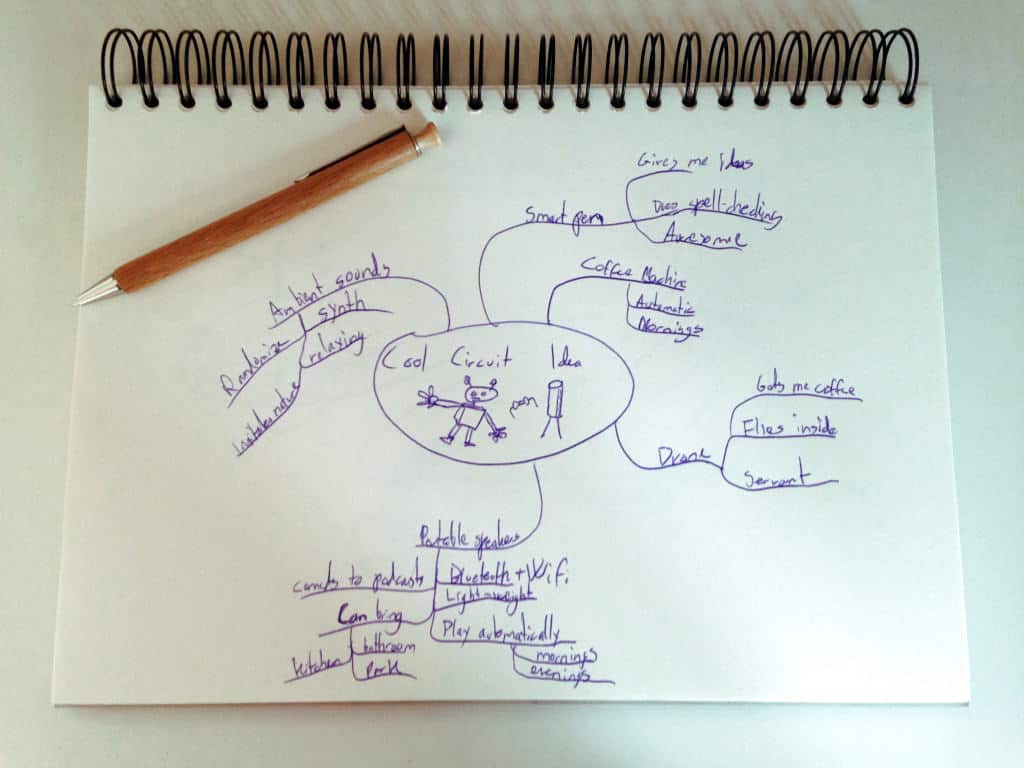 Gives me Ideas
Smart pen
Does spell-checking
Awesome
Coffee Machine
Automatic
Mornings
Ambient sounds
synth
relaxing
Randomize
Cool Circuit Idea
Gets me coffee
Flies inside
Drone
Servant
Portable speakers
to podcasts
Bluetooth + Wifi
Light-weight
Can bring
Play automatically
bathroom
Kitchen
Park
mornings
evenings